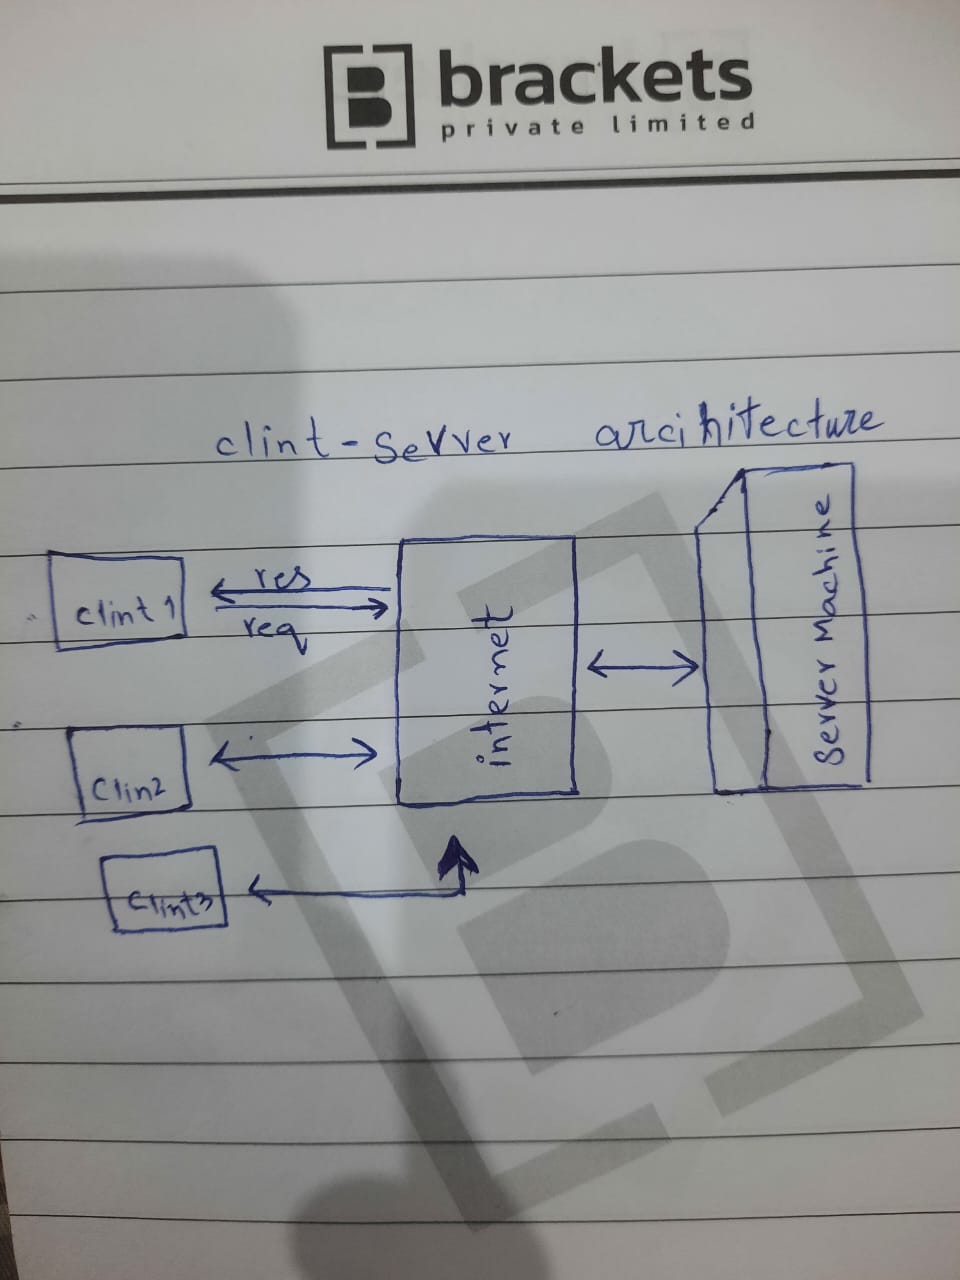 brackets
private limited
clint-server arcihitecture
clint 1
res
req
internet
Server Machine
Clin2
Clint3